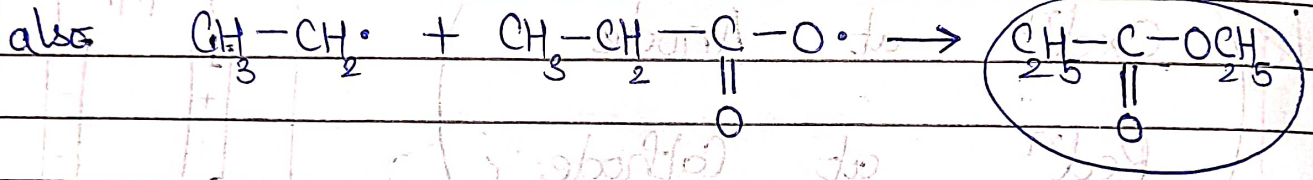 also CH₃-CH₂• + CH₃-CH₂-C-O• → C₂H₅-C-OC₂H₅
|| ||
O O